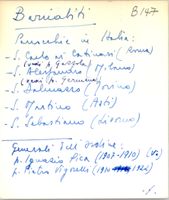 Barnabiti
B147
Parrocchie in Italia:
- S. Carlo ai Catinari (Roma)
- S. Alessandro (Milano)
- S. Dalmazzo (Torino)
- S. Martino (Asti)
- S. Sebastiano (Livorno)
Generali dell'Ordine:
p. Ignazio Pica (1907-1910)
p. Pietro Vigorelli (1910 1922)